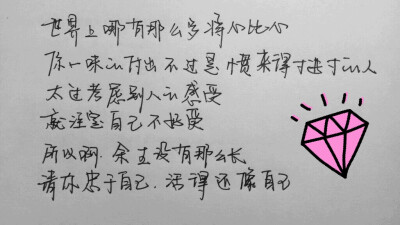 世界上哪有那么多将心比心
你一味的付出不过是惯来得寸进寸的人
太过考虑别人的感受
就注定自己不好受
所以啊.余生没有那么长
请你忠于自己.活得还像自己